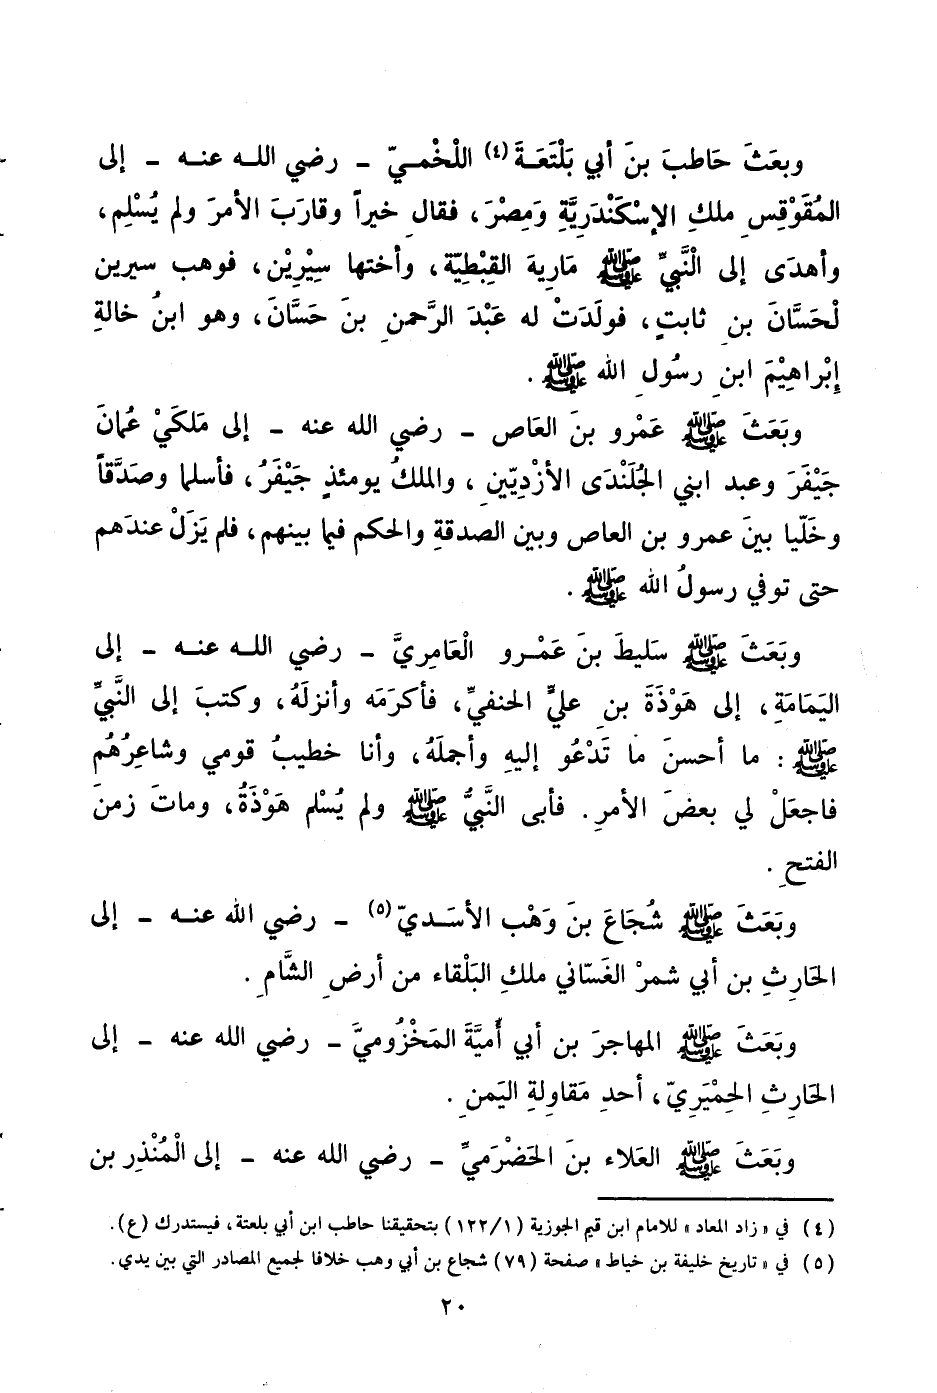 وبعَثَ حَاطبَ بنَ أبي بَلْتَعَةَ(٤) اللْخْمـيّ - رضي اللـه عنـه - إلى
المُقَوْقِسِ ملكِ الإِسْكَنْدَرِيَّةِ وَمِصْرَ، فقال خيراً وقارَبَ الأمرَ ولم يُسْلِم،
وأهدَى إلى الْنَّبيِّ ﷺ مَارِيةَ القِبْطيّة، وأختها سِيْرِيْن، فوهب سيرين
لْحَسَّانَ بنِ ثابتٍ، فولَدَتْ له عَبْدَ الرَّحمنِ بنَ حَسَّانَ، وهو ابنُ خالةِ
إِبْراهِيْمَ ابنِ رسُولِ الله ﷺ.
وبَعَثَ ﷺ عَمْرو بنَ العَاص - رضي الله عنه - إلى مَلكَيْ عُمانَ
جَيْفَرَ وعبد ابني الجُلَنْدَى الأزْدِيّينِ، والملكُ يومئذٍ جَيْفَرُ، فأسلما وصَدَّقاً
وخَلّيا بينَ عمرو بن العاص وبين الصدقةِ والحكم فيما بينهم، فلم يَزَلْ عندَهم
حتى توفي رسولُ الله ﷺ.
وبَعَثَ ﷺ سَليطَ بنَ عَمْـرو الْعَامِريَّ - رضي اللـه عنـه - إلى
اليَمَامَةِ، إلى هَوْذَةَ بنِ عليٍّ الحنفيِّ، فأكرَمَه وأنزلَهُ، وكتبَ إلى النَّبيِّ
ﷺ: ما أحسنَ ما تَدْعُو إليهِ وأجملَهُ، وأنا خطيبُ قومي وشاعِرُهُم
فاجعَلْ لي بعضَ الأمرِ. فأبى النَّبيُّ ﷺ ولم يُسْلم هَوْذَةُ، وماتَ زمنَ
الفتحِ.
وبَعَثَ ﷺ شُجَاعَ بنَ وَهْب الأسَـديّ(٥) - رضي الله عنـه - إلى
الحَارِثِ بن أبي شمرْ الغَسّاني ملكِ البَلْقاء من أرضِ الشَّامِ.
وبَعَثَ ﷺ المهاجرَ بن أبي أُميَّةَ المَخْزُوميَّ - رضي الله عنه - إلى
الحَارِثِ الحِمْيَرِيّ، أحدِ مَقاولةِ اليَمنِ.
وبَعَثَ ﷺ العَلاء بنَ الحَضْرَميِّ - رضي الله عنه - إلى الْمُنْذِر بن
(٤) في «زاد المعاد» للامام ابن قيم الجوزية (١٢٢/١) بتحقيقنا حاطب ابن أبي بلعتة، فيستدرك (ع).
(٥) في «تاريخ خليفة بن خياط» صفحة (٧٩) شجاع بن أبي وهب خلافا لجميع المصادر التي بين يدي.
٢٠